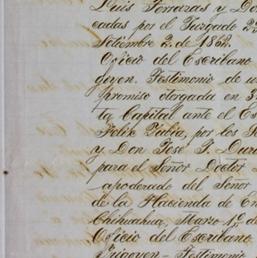 Luis Terrazas y Do
cadas por el Juzgado 2º
Setiembre 2. de 1862.
Oficio del Escribano
goyen. Testimonio de u
promiso otorgada en 3
ta Capital ante el Es
Felix Pidia, por los S
y Don José F. Dura
para el Señor Doctor
apoderado del Señor
de la Hacienda de En
Chihuahua, Marzo 1º d
Oficio del Escribano
Yrigoyen - Testimonio